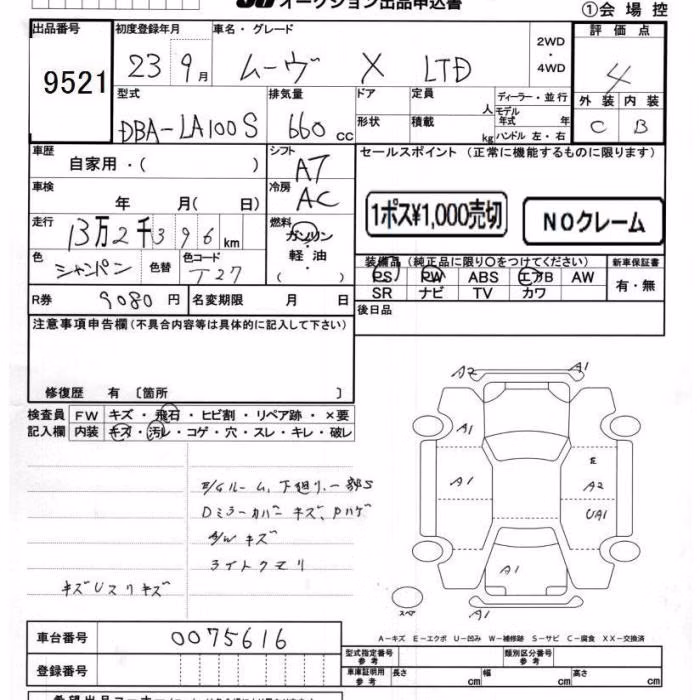 オークション出品申込書
①会場控
出品番号 初度登録年月 車名・グレード 評価点
9521 23 9月 ムーヴ X LTD 2WD・4WD 4
型式 排気量 ドア 定員 人 ディーラー・並行 外装 内装
DBA-LA100S 660cc 形状 積載 kg モデル年式 年 C B
ハンドル 左・右
車歴 自家用・( ) シフト AT セールスポイント (正常に機能するものに限ります)
車検 年 月( 日) 冷房 AC 1ポス¥1,000売切 NOクレーム
走行 13万2千396km 燃料 ガソリン・軽油・( )
色 シャンペン 色替 色コード T27 装備品 (純正品に限り○をつけてください) 新車保証書
PS PW ABS エアB AW 有・無
R券 9080円 名変期限 月 日 SR ナビ TV カワ
注意事項申告欄(不具合内容等は具体的に記入して下さい) 後日品
修復歴 有 〔箇所 〕
検査員 FW キズ・飛石・ヒビ割・リペア跡・×要
記入欄 内装 キズ・汚レ・コゲ・穴・スレ・キレ・破レ
A2 A1
A1
E
A1 A2
UA1
A1
A1
スペア
E/Gルーム、下廻リ、一部S
Dミラーカバー キズ、Pハゲ
A/W キズ
ライトクモリ
キズUスリキズ
A-キズ E-エクボ U-凹み W-補修跡 S-サビ C-腐食 XX-交換済
車台番号 0075616 型式指定番号 参考 類別区分番号 参考
登録番号 車庫証明用 参考 長さ cm 幅 cm 高さ cm